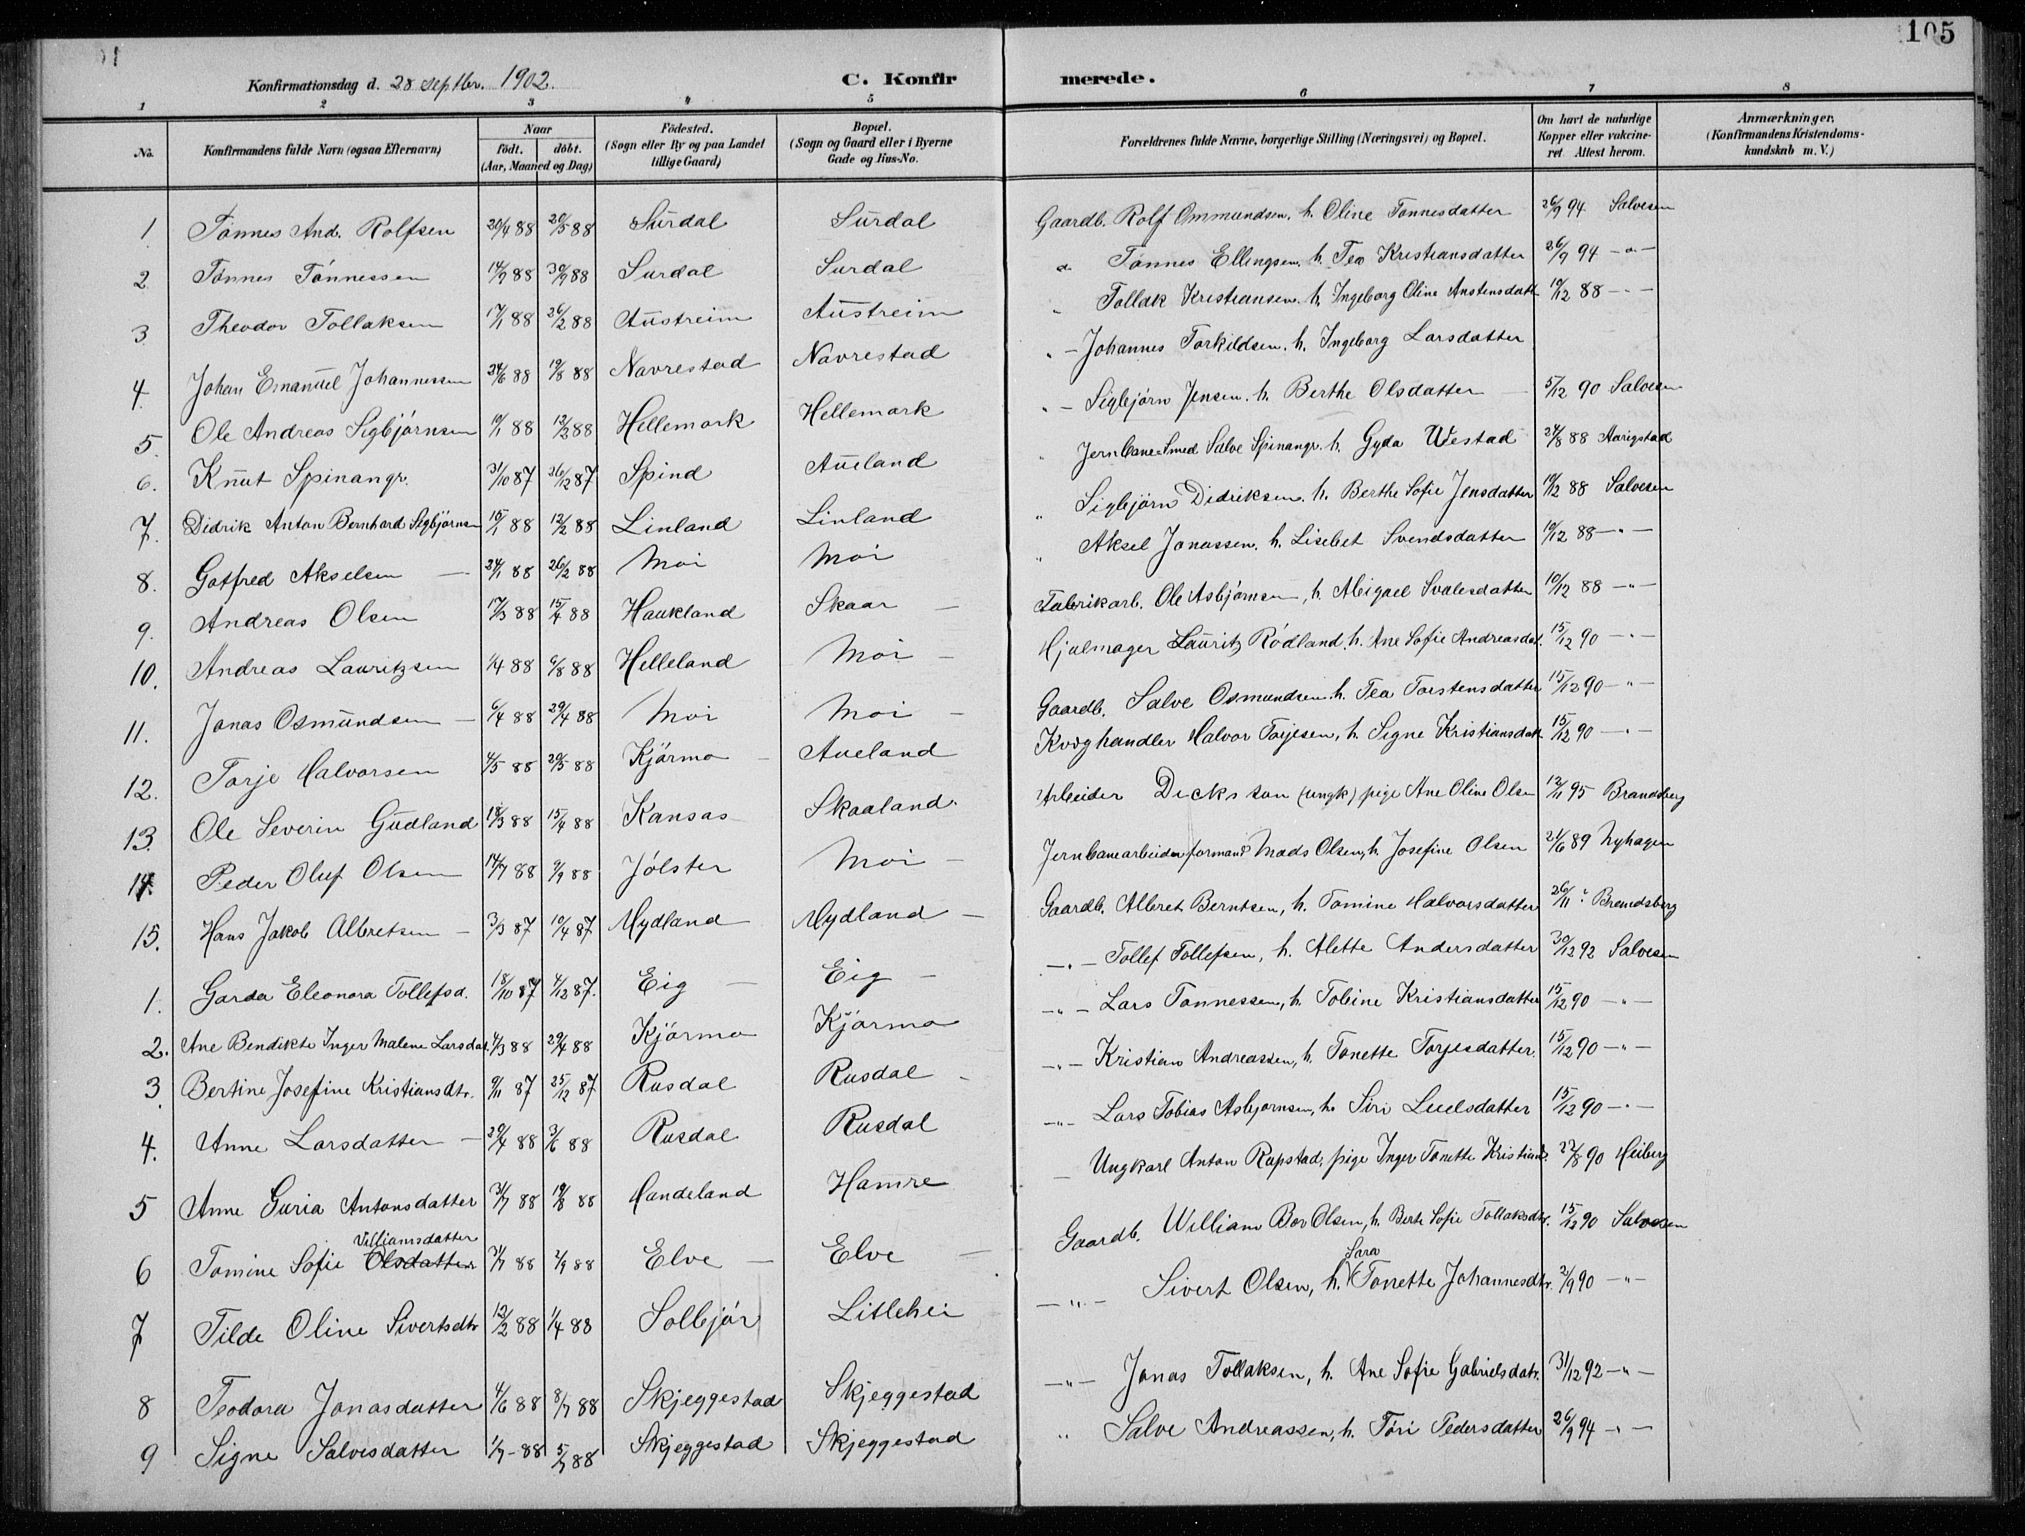 105
Konfirmationsdag d. 28 septbr. 1902.
C. Konfirmerede.
1 2 3 4 5 6 7 8
No. Konfirmandens fulde Navn (ogsaa Efternavn) Naar født. døbt. (Aar, Maaned og Dag) Fødested. (Sogn eller By og paa Landet tillige Gaard) Bopæl. (Sogn og Gaard eller i Byerne Gade og Hus-No. Forældrenes fulde Navne, borgerlige Stilling (Næringsvei) og Bopæl. Om havt de naturlige Kopper eller vakcineret. Attest herom. Anmærkninger. (Konfirmandens Kristendomskundskab m. V.)
1 Tønnes And. Rolfsen 20/4 88 20/5 88 Surdal Surdal Gaardb. Rolf Ommundsen. h. Oline Tønnesdatter 26/9 94 Salvesen
2 Tønnes Tønnessen 14/9 88 30/9 88 Surdal Surdal do Tønnes Ellingsen. h. Tea Kristiansdatter 26/9 94 -"-
3 Theodor Tollaksen 17/1 88 26/2 88 Austreim Austreim " Tollak Kristiansen. h. Ingeborg Oline Anstensdatt 10/12 88 -"-
4. Johan Emanuel Johannessen 24/6 88 19/8 88 Navrestad Navrestad "- Johannes Torkildsen. h. Ingeborg Larsdatter
5. Ole Andreas Sigbjørnsen 10/1 88 12/2 88 Hellemark Hellemark "- Sigbjørn Jensen. h. Berthe Olsdatter 5/12 90 Salvesen
6. Knut Spinangr. 31/10 87 26/12 87 Spind Aueland " Jernbane-Smed Salve Spinangr. h. Gyda Westad 24/8 88 Aarigstad
7. Didrik Anton Bernhard Sigbjørnsen 15/1 88 12/2 88 Linland Linland " Sigbjørn Didriksen. h. Berthe Sofie Jensdatter 10/12 88 Salvesen
8. Gotfred Akselsen 24/1 88 26/2 88 Moi Moi " Aksel Jonassen. h. Lisebet Svendsdatter 10/12 88 -"-
9. Andreas Olsen 17/3 88 15/4 88 Haukland Skaar Fabrikarb. Ole Asbjørnsen, h. Abigael Svalesdatter 10/12 88 -"-
10. Andreas Lauritzsen 1/4 88 6/8 88 Helleland Moi Hjulmager Lauritz Rødland. h. Ane Sofie Andreasdat. 15/12 90 -"-
11. Jonas Osmundsen 6/4 88 29/4 88 Moi Moi Gaardb. Salve Osmundsen. h. Tea Torstensdatter 15/12 90 -"-
12. Torje Halvorsen 4/5 88 20/5 88 Kjørmo Aueland Kvæghandler Halvor Torjesen, h. Signe Kristiansdatt 15/12 90 -"-
13. Ole Severin Gudland 14/3 88 15/4 88 Kansas Skaaland. Arbeider Dickson (ungk) pige Ane Oline Olsen 12/11 95 Brandsberg
14. Peder Oluf Olsen 14/7 88 9/9 88 Jølster Moi Jernbanearbeiderformand Mads Olsen, h. Josefine Olsen 21/6 89 Nyhagen
15. Hans Jakob Albretsen 3/3 87 10/4 87 Mydland Mydland Gaardb. Albret Berntsen, h. Tomine Halvorsdatter 26/11 " Brandsberg
1. Garda Eleonora Tollefsd. 18/10 87 4/12 87. Eig Eig -"- Tollef Tollefsen, h. Alette Andersdatter 30/12 92 Salvesen
2. Ane Bendikte Inger Malene Larsdat. 4/3 88 29/4 88 Kjørmo Kjørmo -"- Lars Tønnessen, h. Tobine Kristiansdatter 15/12 90 -"-
3. Bertine Josefine Kristiansdtr. 9/11 87 25/12 87 Rusdal Rusdal -"- Kristian Andreassen, h. Tonette Torjesdatter. 15/12 90 -"-
4. Anne Larsdatter 29/4 88 3/6 88 Rusdal Rusdal -"- Lars Tobias Asbjørnsen, h. Siri Luelsdatter 15/12 90 -"-
5 Anne Guria Antonsdatter 31/7 88 19/8 88 Handeland Hamre Ungkarl Anton Rapstad, pige Inger Tonette Kristiand. 27/8 90 Heiberg
Villiamsdatter
6 Tomine Sofie Olsdatter 31/7 88 2/9 88 Elve Elve Gaardb. William Bov Olsen, h. Berte Sofie Tollaksdtr. 15/12 90 Salvesen
7 Tilde Oline Sivertsdtr 12/2 88 1/4 88 Solbjør Litlehei -"- Sivert Olsen, h. Sara Tonette Johannesdtr. 2/9 90 -"-
8 Teodora Jonasdatter 4/6 88 8/7 88 Skjeggestad Skjeggestad -"- Jonas Tollaksen, h. Ane Sofie Gabrielsdatr. 31/12 92 -"-
9 Signe Salvesdatter 1/7 - 88 5/7 88 Skjeggestad Skjeggestad " Salve Andreassen, h. Tøri Pedersdatter 26/9 94 -"-